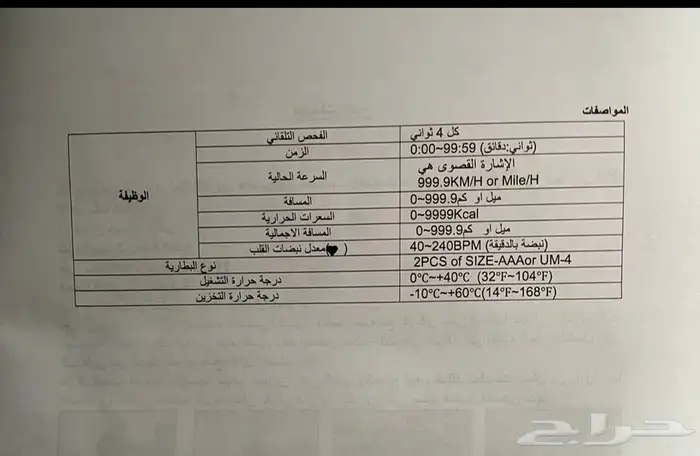 المواصفات
الوظيفة
الفحص التلقائي كل 4 ثواني
الزمن 0:00~99:59 (ثواني:دقائق)
السرعة الحالية الإشارة القصوى هي
999.9KM/H or Mile/H
المسافة 0~999.9ميل او كم
السعرات الحرارية 0~9999Kcal
المسافة الاجمالية 0~999.9ميل او كم
(♥معدل نبضات القلب ) 40~240BPM (نبضة بالدقيقة)
نوع البطارية 2PCS of SIZE-AAAor UM-4
درجة حرارة التشغيل 0℃~+40℃ (32℉~104℉)
درجة حرارة التخزين -10℃~+60℃(14℉~168℉)
حراج